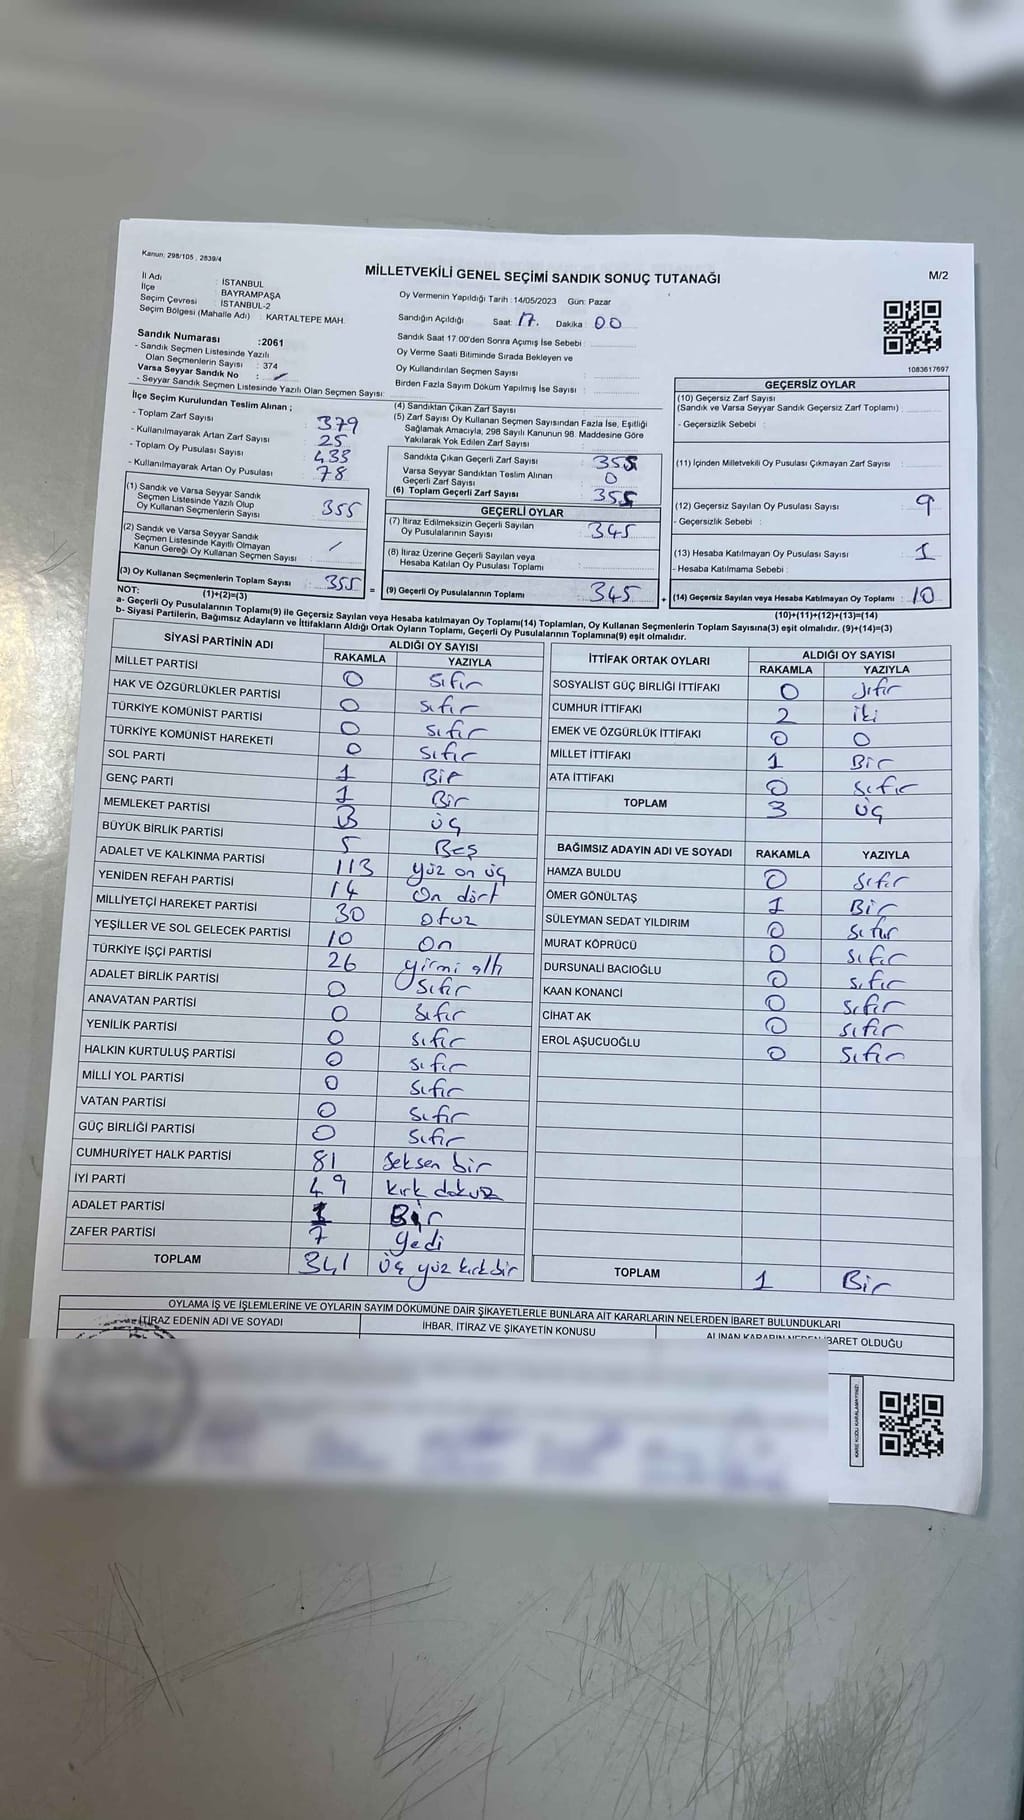 Kanun: 298/105 , 2839/4
MİLLETVEKİLİ GENEL SEÇİMİ SANDIK SONUÇ TUTANAĞI
M/2
İl Adı : İSTANBUL
İlçe : BAYRAMPAŞA
Seçim Çevresi : İSTANBUL-2
Seçim Bölgesi (Mahalle Adı) : KARTALTEPE MAH.
Oy Vermenin Yapıldığı Tarih : 14/05/2023 Gün: Pazar
Sandığın Açıldığı Saat: 17. Dakika : 00
Sandık Saat 17:00'den Sonra Açımış İse Sebebi :
Oy Verme Saati Bitiminde Sırada Bekleyen ve
Oy Kullandırılan Seçmen Sayısı :
Birden Fazla Sayım Döküm Yapılmış İse Sayısı :
1083617697
Sandık Numarası :2061
- Sandık Seçmen Listesinde Yazılı
Olan Seçmenlerin Sayısı : 374
Varsa Seyyar Sandık No :
- Seyyar Sandık Seçmen Listesinde Yazılı Olan Seçmen Sayısı:
İlçe Seçim Kurulundan Teslim Alınan ;
- Toplam Zarf Sayısı : 379
- Kullanılmayarak Artan Zarf Sayısı : 25
- Toplam Oy Pusulası Sayısı : 433
- Kullanılmayarak Artan Oy Pusulası : 78
(1) Sandık ve Varsa Seyyar Sandık
Seçmen Listesinde Yazılı Olup
Oy Kullanan Seçmenlerin Sayısı : 355
(2) Sandık ve Varsa Seyyar Sandık
Seçmen Listesinde Kayıtlı Olmayan
Kanun Gereği Oy Kullanan Seçmen Sayısı : /
(3) Oy Kullanan Seçmenlerin Toplam Sayısı : 355 =
(1)+(2)=(3)
(4) Sandıktan Çıkan Zarf Sayısı :
(5) Zarf Sayısı Oy Kullanan Seçmen Sayısından Fazla İse, Eşitliği
Sağlamak Amacıyla, 298 Sayılı Kanunun 98. Maddesine Göre
Yakılarak Yok Edilen Zarf Sayısı :
Sandıkta Çıkan Geçerli Zarf Sayısı : 355
Varsa Seyyar Sandıktan Teslim Alınan
Geçerli Zarf Sayısı : 0
(6) Toplam Geçerli Zarf Sayısı : 355
GEÇERLİ OYLAR
(7) İtiraz Edilmeksizin Geçerli Sayılan
Oy Pusulalarının Sayısı : 345
(8) İtiraz Üzerine Geçerli Sayılan veya
Hesaba Katılan Oy Pusulası Toplamı :
(9) Geçerli Oy Pusulalarının Toplamı : 345 +
GEÇERSİZ OYLAR
(10) Geçersiz Zarf Sayısı
(Sandık ve Varsa Seyyar Sandık Geçersiz Zarf Toplamı) :
- Geçersizlik Sebebi :
(11) İçinden Milletvekili Oy Pusulası Çıkmayan Zarf Sayısı :
(12) Geçersiz Sayılan Oy Pusulası Sayısı : 9
- Geçersizlik Sebebi :
(13) Hesaba Katılmayan Oy Pusulası Sayısı : 1
- Hesaba Katılmama Sebebi :
(14) Geçersiz Sayılan veya Hesaba Katılmayan Oy Toplamı : 10
(10)+(11)+(12)+(13)=(14)
NOT:
a- Geçerli Oy Pusulalarının Toplamı(9) ile Geçersiz Sayılan veya Hesaba Katılmayan Oy Toplamı(14) Toplamları, Oy Kullanan Seçmenlerin Toplam Sayısına(3) eşit olmalıdır. (9)+(14)=(3)
b- Siyasi Partilerin, Bağımsız Adayların ve İttifakların Aldığı Ortak Oyların Toplamı, Geçerli Oy Pusulalarının Toplamına(9) eşit olmalıdır.
SİYASİ PARTİNİN ADI ALDIĞI OY SAYISI
RAKAMLA YAZIYLA
MİLLET PARTİSİ 0 Sıfır
HAK VE ÖZGÜRLÜKLER PARTİSİ 0 Sıfır
TÜRKİYE KOMÜNİST PARTİSİ 0 Sıfır
TÜRKİYE KOMÜNİST HAREKETİ 0 Sıfır
SOL PARTİ 1 Bir
GENÇ PARTİ 1 Bir
MEMLEKET PARTİSİ 3 üç
BÜYÜK BİRLİK PARTİSİ 5 Beş
ADALET VE KALKINMA PARTİSİ 113 yüz on üç
YENİDEN REFAH PARTİSİ 14 On dört
MİLLİYETÇİ HAREKET PARTİSİ 30 otuz
YEŞİLLER VE SOL GELECEK PARTİSİ 10 On
TÜRKİYE İŞÇİ PARTİSİ 26 yirmi altı
ADALET BİRLİK PARTİSİ 0 Sıfır
ANAVATAN PARTİSİ 0 Sıfır
YENİLİK PARTİSİ 0 Sıfır
HALKIN KURTULUŞ PARTİSİ 0 Sıfır
MİLLİ YOL PARTİSİ 0 Sıfır
VATAN PARTİSİ 0 Sıfır
GÜÇ BİRLİĞİ PARTİSİ 0 Sıfır
CUMHURİYET HALK PARTİSİ 81 Seksen bir
İYİ PARTİ 49 kırk dokuz
ADALET PARTİSİ 1 Bir
ZAFER PARTİSİ 7 yedi
TOPLAM 341 üç yüz kırkbir
İTTİFAK ORTAK OYLARI ALDIĞI OY SAYISI
RAKAMLA YAZIYLA
SOSYALİST GÜÇ BİRLİĞİ İTTİFAKI 0 Sıfır
CUMHUR İTTİFAKI 2 iki
EMEK VE ÖZGÜRLÜK İTTİFAKI 0 0
MİLLET İTTİFAKI 1 Bir
ATA İTTİFAKI 0 Sıfır
TOPLAM 3 üç
BAĞIMSIZ ADAYIN ADI VE SOYADI RAKAMLA YAZIYLA
HAMZA BULDU 0 Sıfır
ÖMER GÖNÜLTAŞ 1 Bir
SÜLEYMAN SEDAT YILDIRIM 0 Sıfır
MURAT KÖPRÜCÜ 0 Sıfır
DURSUNALİ BACIOĞLU 0 Sıfır
KAAN KONANCİ 0 Sıfır
CİHAT AK 0 Sıfır
EROL AŞUCUOĞLU 0 Sıfır
TOPLAM 1 Bir
OYLAMA İŞ VE İŞLEMLERİNE VE OYLARIN SAYIM DÖKÜMÜNE DAİR ŞİKAYETLERLE BUNLARA AİT KARARLARIN NELERDEN İBARET BULUNDUKLARI
İTİRAZ EDENİN ADI VE SOYADI İHBAR, İTİRAZ VE ŞİKAYETİN KONUSU ALINAN KARARIN NEDEN İBARET OLDUĞU
KARE KODU KARALAMAYINIZ!